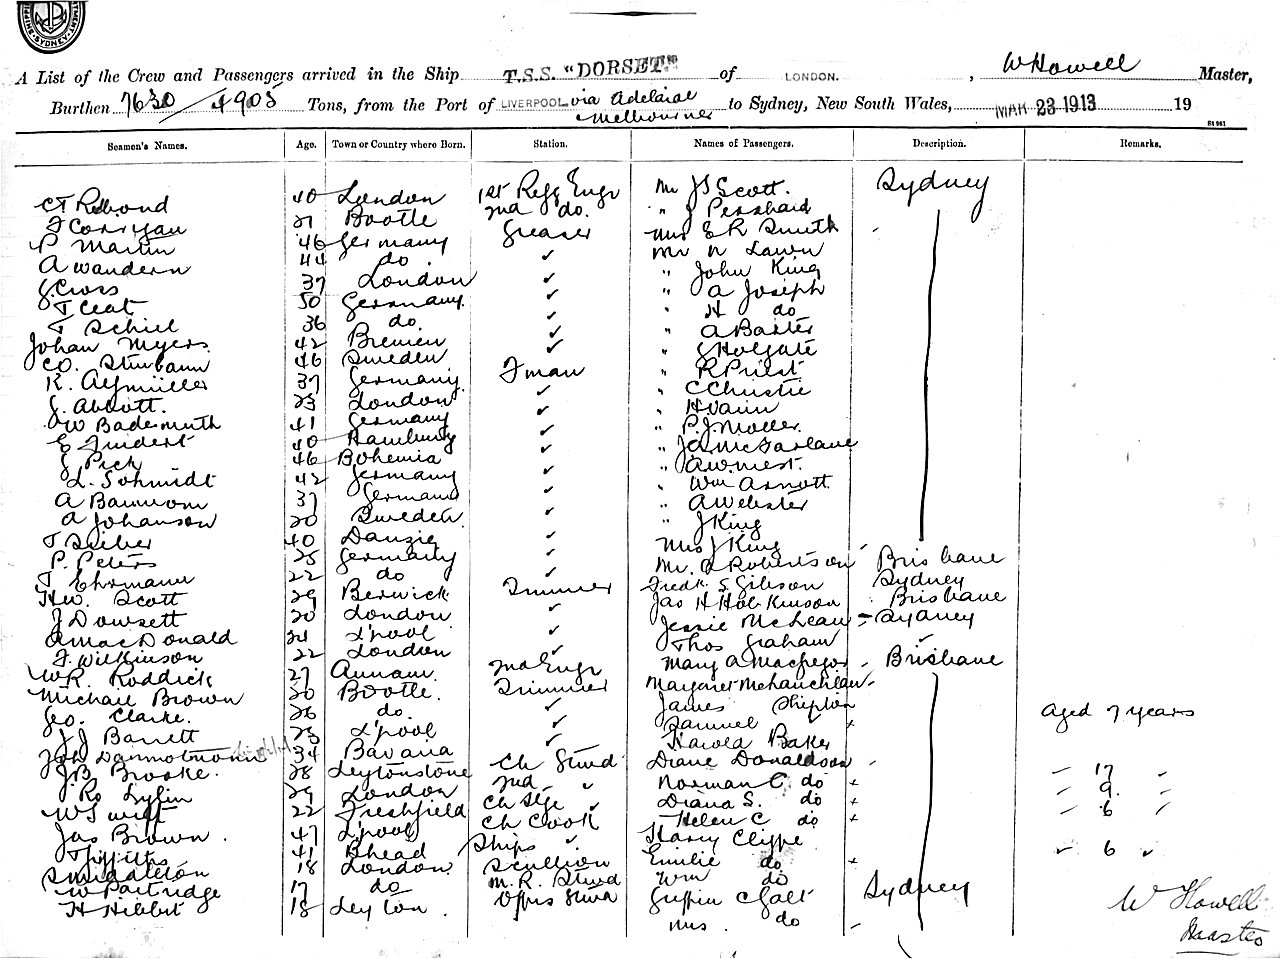 SYDNEY
A List of the Crew and Passengers arrived in the Ship T.S.S. "DORSET" of LONDON. , W Howell Master,
Burthen 7630 / 4905 Tons, from the Port of LIVERPOOL via Adelaide Melbourne to Sydney, New South Wales, MAR 23 1913 19
St 961
Seamen's Names. Age. Town or Country where Born. Station. Names of Passengers. Description. Remarks.
40 London 1st Refg Engr Mr J S Scott. Sydney
F Corryan 21 Bootle 2nd do. " J
P Martin 46 Germany Greaser Mrs E R Smith
A Wandern 44 do. ✓ Mr N Lawn
J. Cross 37 London ✓ " John King
T Ceat 50 Germany. ✓ " A Joseph
T Schiel 36 do. ✓ " H do
Johan Myers. 42 Bremen ✓ " A Baxter
46 Sweden ✓ " J Holgate
K. 37 Germany. Fman " R Priest
J. Abbott. 23 London ✓ " C Christie
W Badesmuth 41 Germany ✓ " H Vann
E 40 Hamburg ✓ " P. J. Moller.
J Pick 46 Bohemia ✓ " J. A. McFarlane
L. Schmidt 42 Germany ✓ " A. W. West.
A 37 Germany ✓ " Wm Arnott.
A Johanson 20 Sweden. ✓ " A Webster
T 40 Danzig ✓ " J King
P. Peters 25 Germany ✓ Mrs J King
T Ehrmann 22 do ✓ Mr. A Robertson Brisbane
Hw. Scott 29 Berwick Trimmer Fredk. S. Gibson Sydney
J Dowsett 20 London ✓ Jas H Hopkinson Brisbane
A MacDonald 21 L'pool ✓ Jessie McLean Sydney
F. Wilkinson 22 London ✓ Thos Graham ✓
W. R. Roddick 27 Annam. 2nd Engr Mary A Macgregor Brisbane
Michael Brown 20 Bootle. Trimmer Margaret McLauchlan
Geo. Clarke. 26 do. ✓ James Shipton Aged 7 years
J J Barrett 23 L'pool ✓ Samuel
34 Bavaria ✓ Harold Baker
J. B. Brooke. 28 Leytonstone Ch Stwd Diane Donaldson " 17 "
29 London 2nd ✓ Norman C. do " 9. "
W Swift 22 Freshfield Diana S. do " 6 "
Jas Brown. 47 L'pool Ch Cook Helen C do
Griffiths 41 B'head Ships ✓ Harry Clippe " 6 "
S Middleton 18 London. Scullion Emilie do
W Partridge 17 do M. R. Stwd Wm do
H Hibbit 18 Leyton. Offrs Stwd Griffin C Galt Sydney
Mrs. do
W Howell
Master